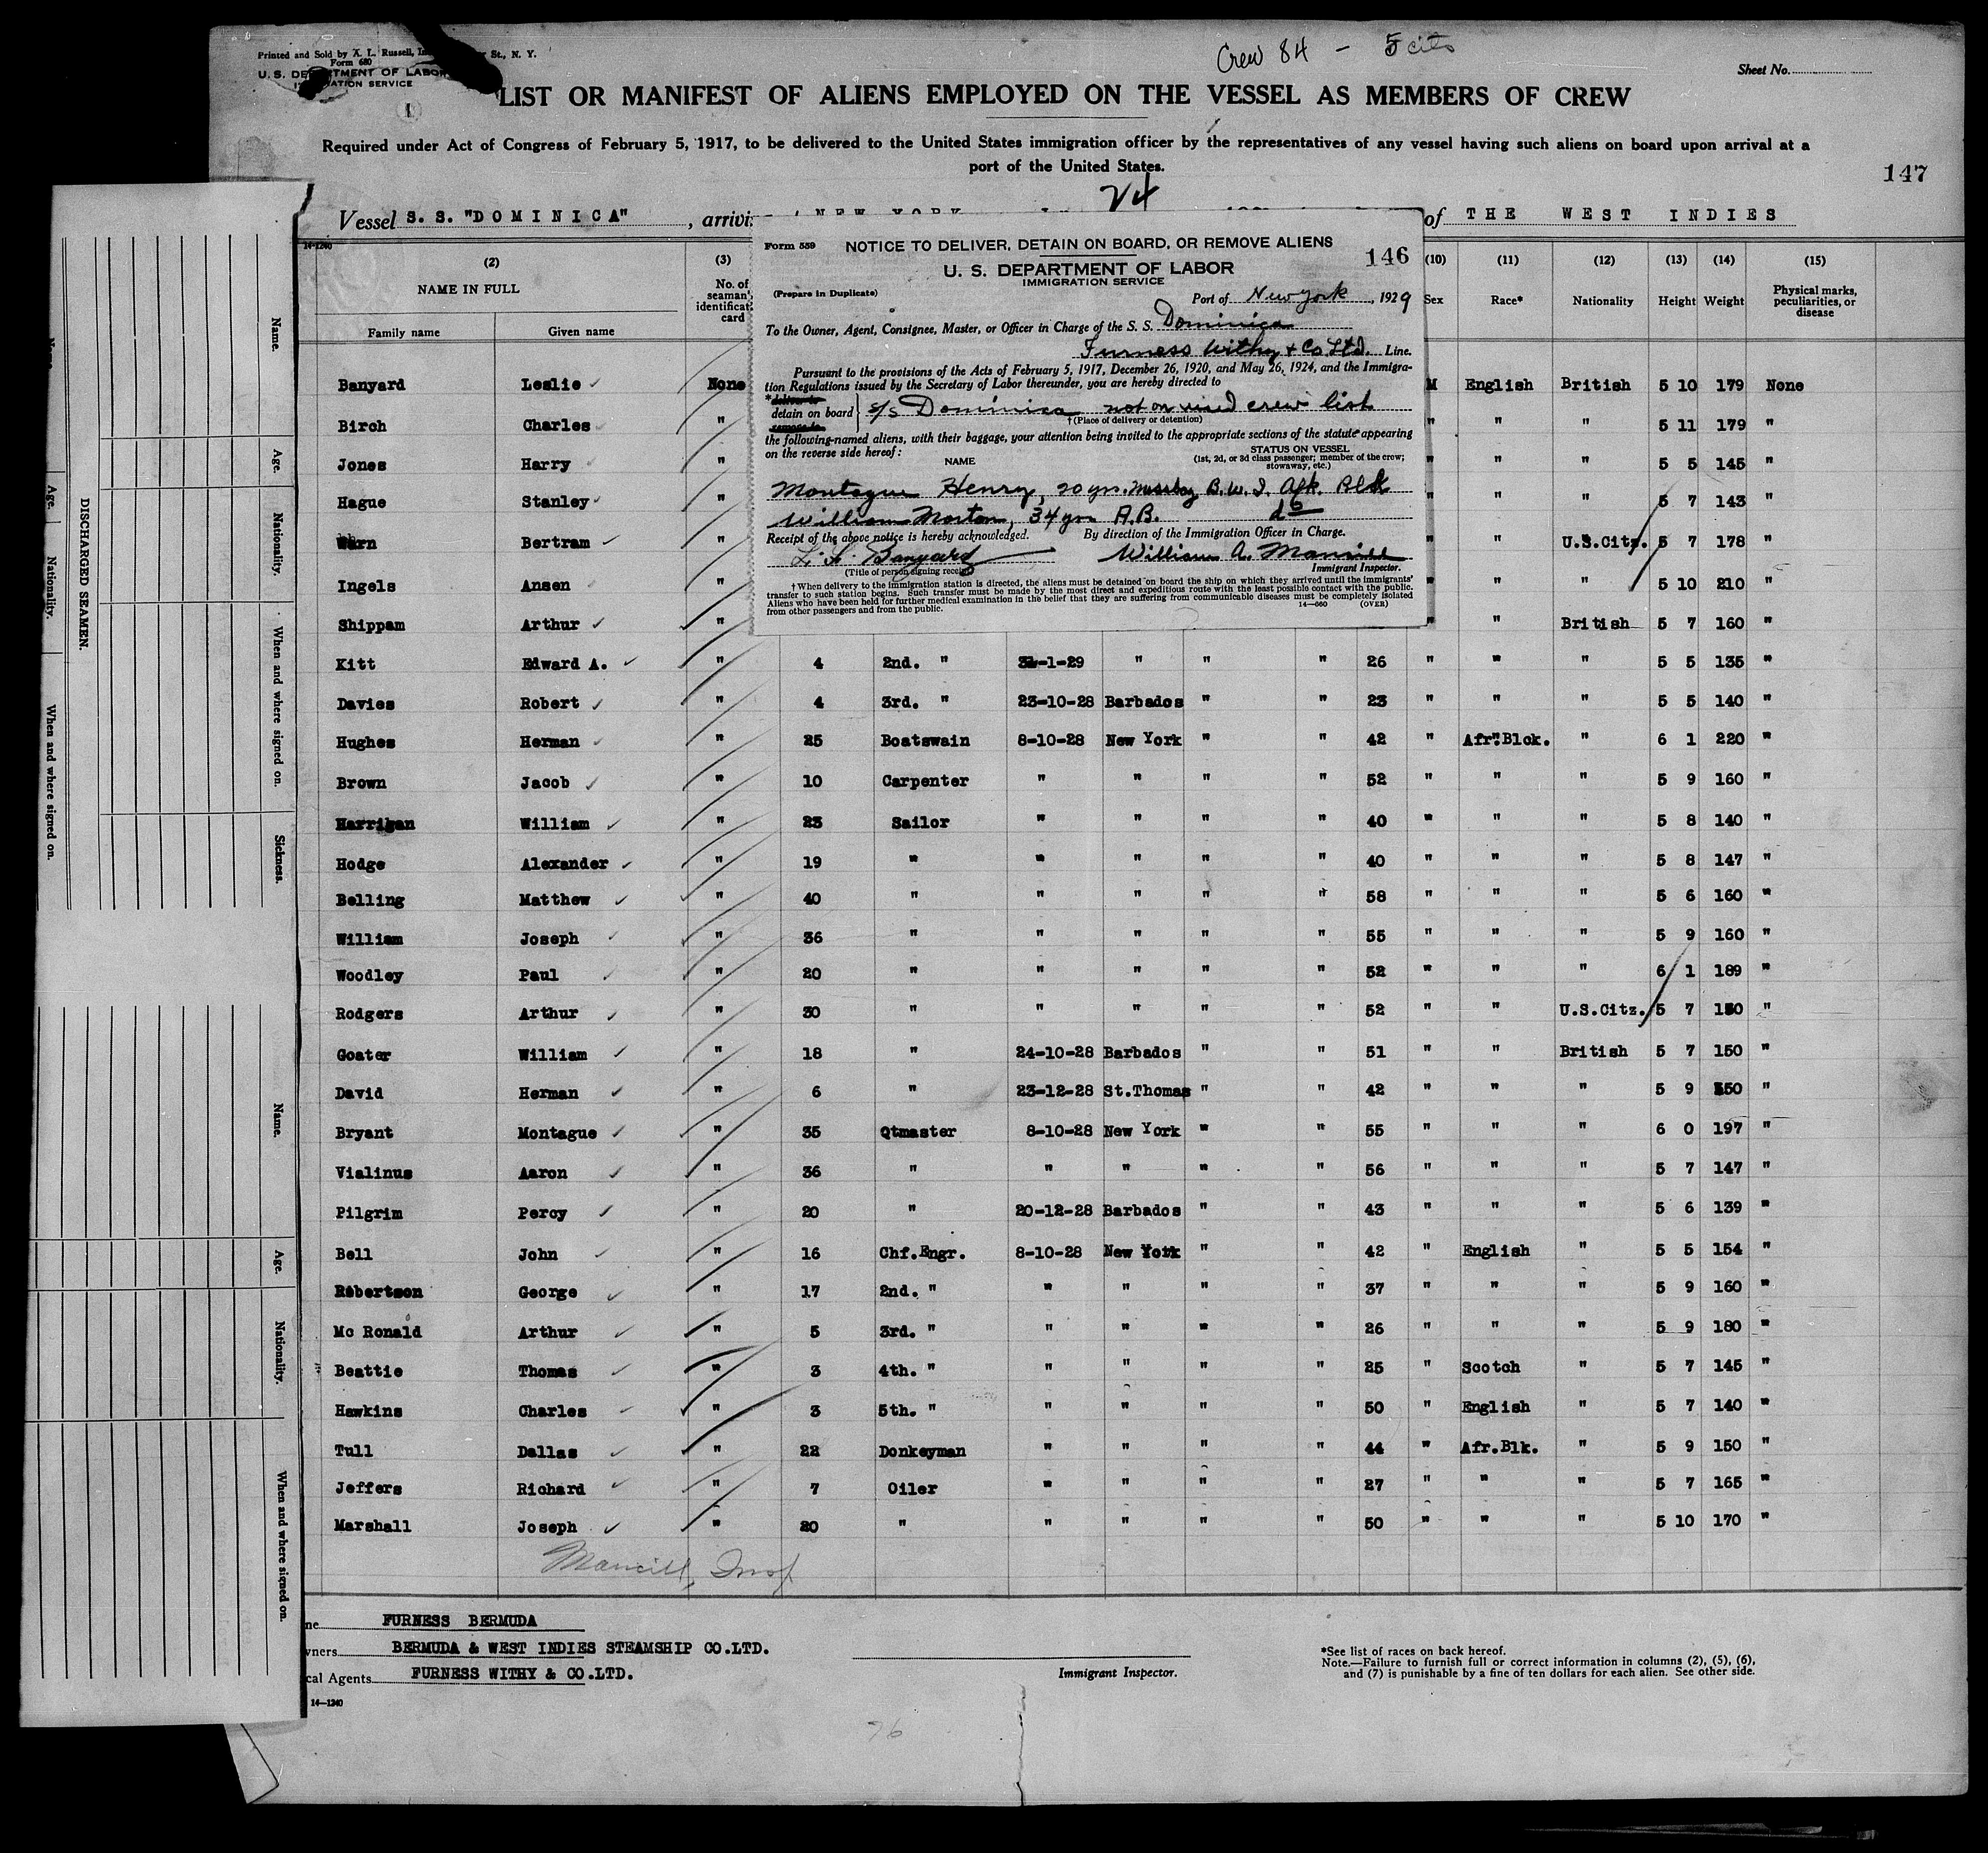 Printed and Sold by A. L. Russell, St., N. Y.
Form 680
U. S. DEPARTMENT OF LABOR
IMMIGRATION SERVICE
Crew 84 - 5 cits
Sheet No.
LIST OR MANIFEST OF ALIENS EMPLOYED ON THE VESSEL AS MEMBERS OF CREW
Required under Act of Congress of February 5, 1917, to be delivered to the United States immigration officer by the representatives of any vessel having such aliens on board upon arrival at a
port of the United States.
147
24
Vessel S. S. "DOMINICA", NEW YORK of THE WEST INDIES
14-1240
(2) (3) (10) (11) (12) (13) (14) (15)
NAME IN FULL No. of seaman's identificat card Sex Race* Nationality Height Weight Physical marks, peculiarities, or disease
Family name Given name
Form 559 NOTICE TO DELIVER, DETAIN ON BOARD, OR REMOVE ALIENS 146
U. S. DEPARTMENT OF LABOR
IMMIGRATION SERVICE
(Prepare in Duplicate)
Port of New York, 1929
To the Owner, Agent, Consignee, Master, or Officer in Charge of the S. S. Dominica
Furness Withy & Co Ltd. Line.
Pursuant to the provisions of the Acts of February 5, 1917, December 26, 1920, and May 26, 1924, and the Immigra-
tion Regulations issued by the Secretary of Labor thereunder, you are hereby directed to
*deliver to
detain on board S/S Dominica not on visaed crew list
remove to
†(Place of delivery or detention)
the following-named aliens, with their baggage, your attention being invited to the appropriate sections of the statute appearing
on the reverse side hereof:
NAME
STATUS ON VESSEL
(1st, 2d, or 3d class passenger; member of the crew;
stowaway, etc.)
Montague Henry, 20 yrs. B.W.I. Afr. Blk
William Morton, 34 yrs A.B. do
Receipt of the above notice is hereby acknowledged. By direction of the Immigration Officer in Charge.
Banyard William A. Mancill
(Title of person signing receipt) Immigrant Inspector.
†When delivery to the immigration station is directed, the aliens must be detained on board the ship on which they arrived until the immigrants'
transfer to such station begins. Such transfer must be made by the most direct and expeditious route with the least possible contact with the public.
Aliens who have been held for further medical examination in the belief that they are suffering from communicable diseases must be completely isolated
from other passengers and from the public. 14—660 (OVER)
Banyard Leslie None M English British 5 10 179 None
Birch Charles " " " " 5 11 179 "
Jones Harry " " " " 5 5 145 "
Hague Stanley " " " " 5 7 143 "
Bertram " " " U.S.Citz. 5 7 178 "
Ingels Ansen " " " " 5 10 210 "
Shippam Arthur " " " British 5 7 160 "
Kitt Edward A. " 4 2nd. " 31-1-29 " " " 26 " " " 5 5 135 "
Davies Robert " 4 3rd. " 23-10-28 Barbados " " 23 " " " 5 5 140 "
Hughes Herman " 25 Boatswain 8-10-28 New York " " 42 " Afr. Blck. " 6 1 220 "
Brown Jacob " 10 Carpenter " " " " 52 " " " 5 9 160 "
Harrigan William " 23 Sailor " " " " 40 " " " 5 8 140 "
Hodge Alexander " 19 " " " " " 40 " " " 5 8 147 "
Belling Matthew " 40 " " " " " 58 " " " 5 6 160 "
William Joseph " 36 " " " " " 55 " " " 5 9 160 "
Woodley Paul " 20 " " " " " 52 " " " 6 1 189 "
Rodgers Arthur " 30 " " " " " 52 " " U.S.Citz. 5 7 150 "
Goater William " 18 " 24-10-28 Barbados " " 51 " " British 5 7 150 "
David Herman " 6 " 23-12-28 St.Thomas " " 42 " " " 5 9 350 "
Bryant Montague " 35 Qtmaster 8-10-28 New York " " 55 " " " 6 0 197 "
Vialinus Aaron " 36 " " " " " 56 " " " 5 7 147 "
Pilgrim Percy " 20 " 20-12-28 Barbados " " 43 " " " 5 6 139 "
Bell John " 16 Chf.Engr. 8-10-28 New York " " 42 " English " 5 5 154 "
Robertson George " 17 2nd. " " " " " 37 " " " 5 9 160 "
Mc Ronald Arthur " 5 3rd. " " " " " 26 " " " 5 9 180 "
Beattie Thomas " 3 4th. " " " " " 25 " Scotch " 5 7 145 "
Hawkins Charles " 3 5th. " " " " " 50 " English " 5 7 140 "
Tull Dallas " 22 Donkeyman " " " " 44 " Afr.Blk. " 5 9 150 "
Jeffers Richard " 7 Oiler " " " " 27 " " " 5 7 165 "
Marshall Joseph " 20 " " " " " 50 " " " 5 10 170 "
Mancill, Insp
FURNESS BERMUDA
BERMUDA & WEST INDIES STEAMSHIP CO.LTD.
Agents FURNESS WITHY & CO.LTD.
14—1240
Immigrant Inspector.
*See list of races on back hereof.
Note.—Failure to furnish full or correct information in columns (2), (5), (6),
and (7) is punishable by a fine of ten dollars for each alien. See other side.
76
DISCHARGED SEAMEN.
Name. Age. Nationality. When and where signed on. Sickness.
Age. Nationality. When and where signed on.
Name. Age. Nationality. When and where signed on.